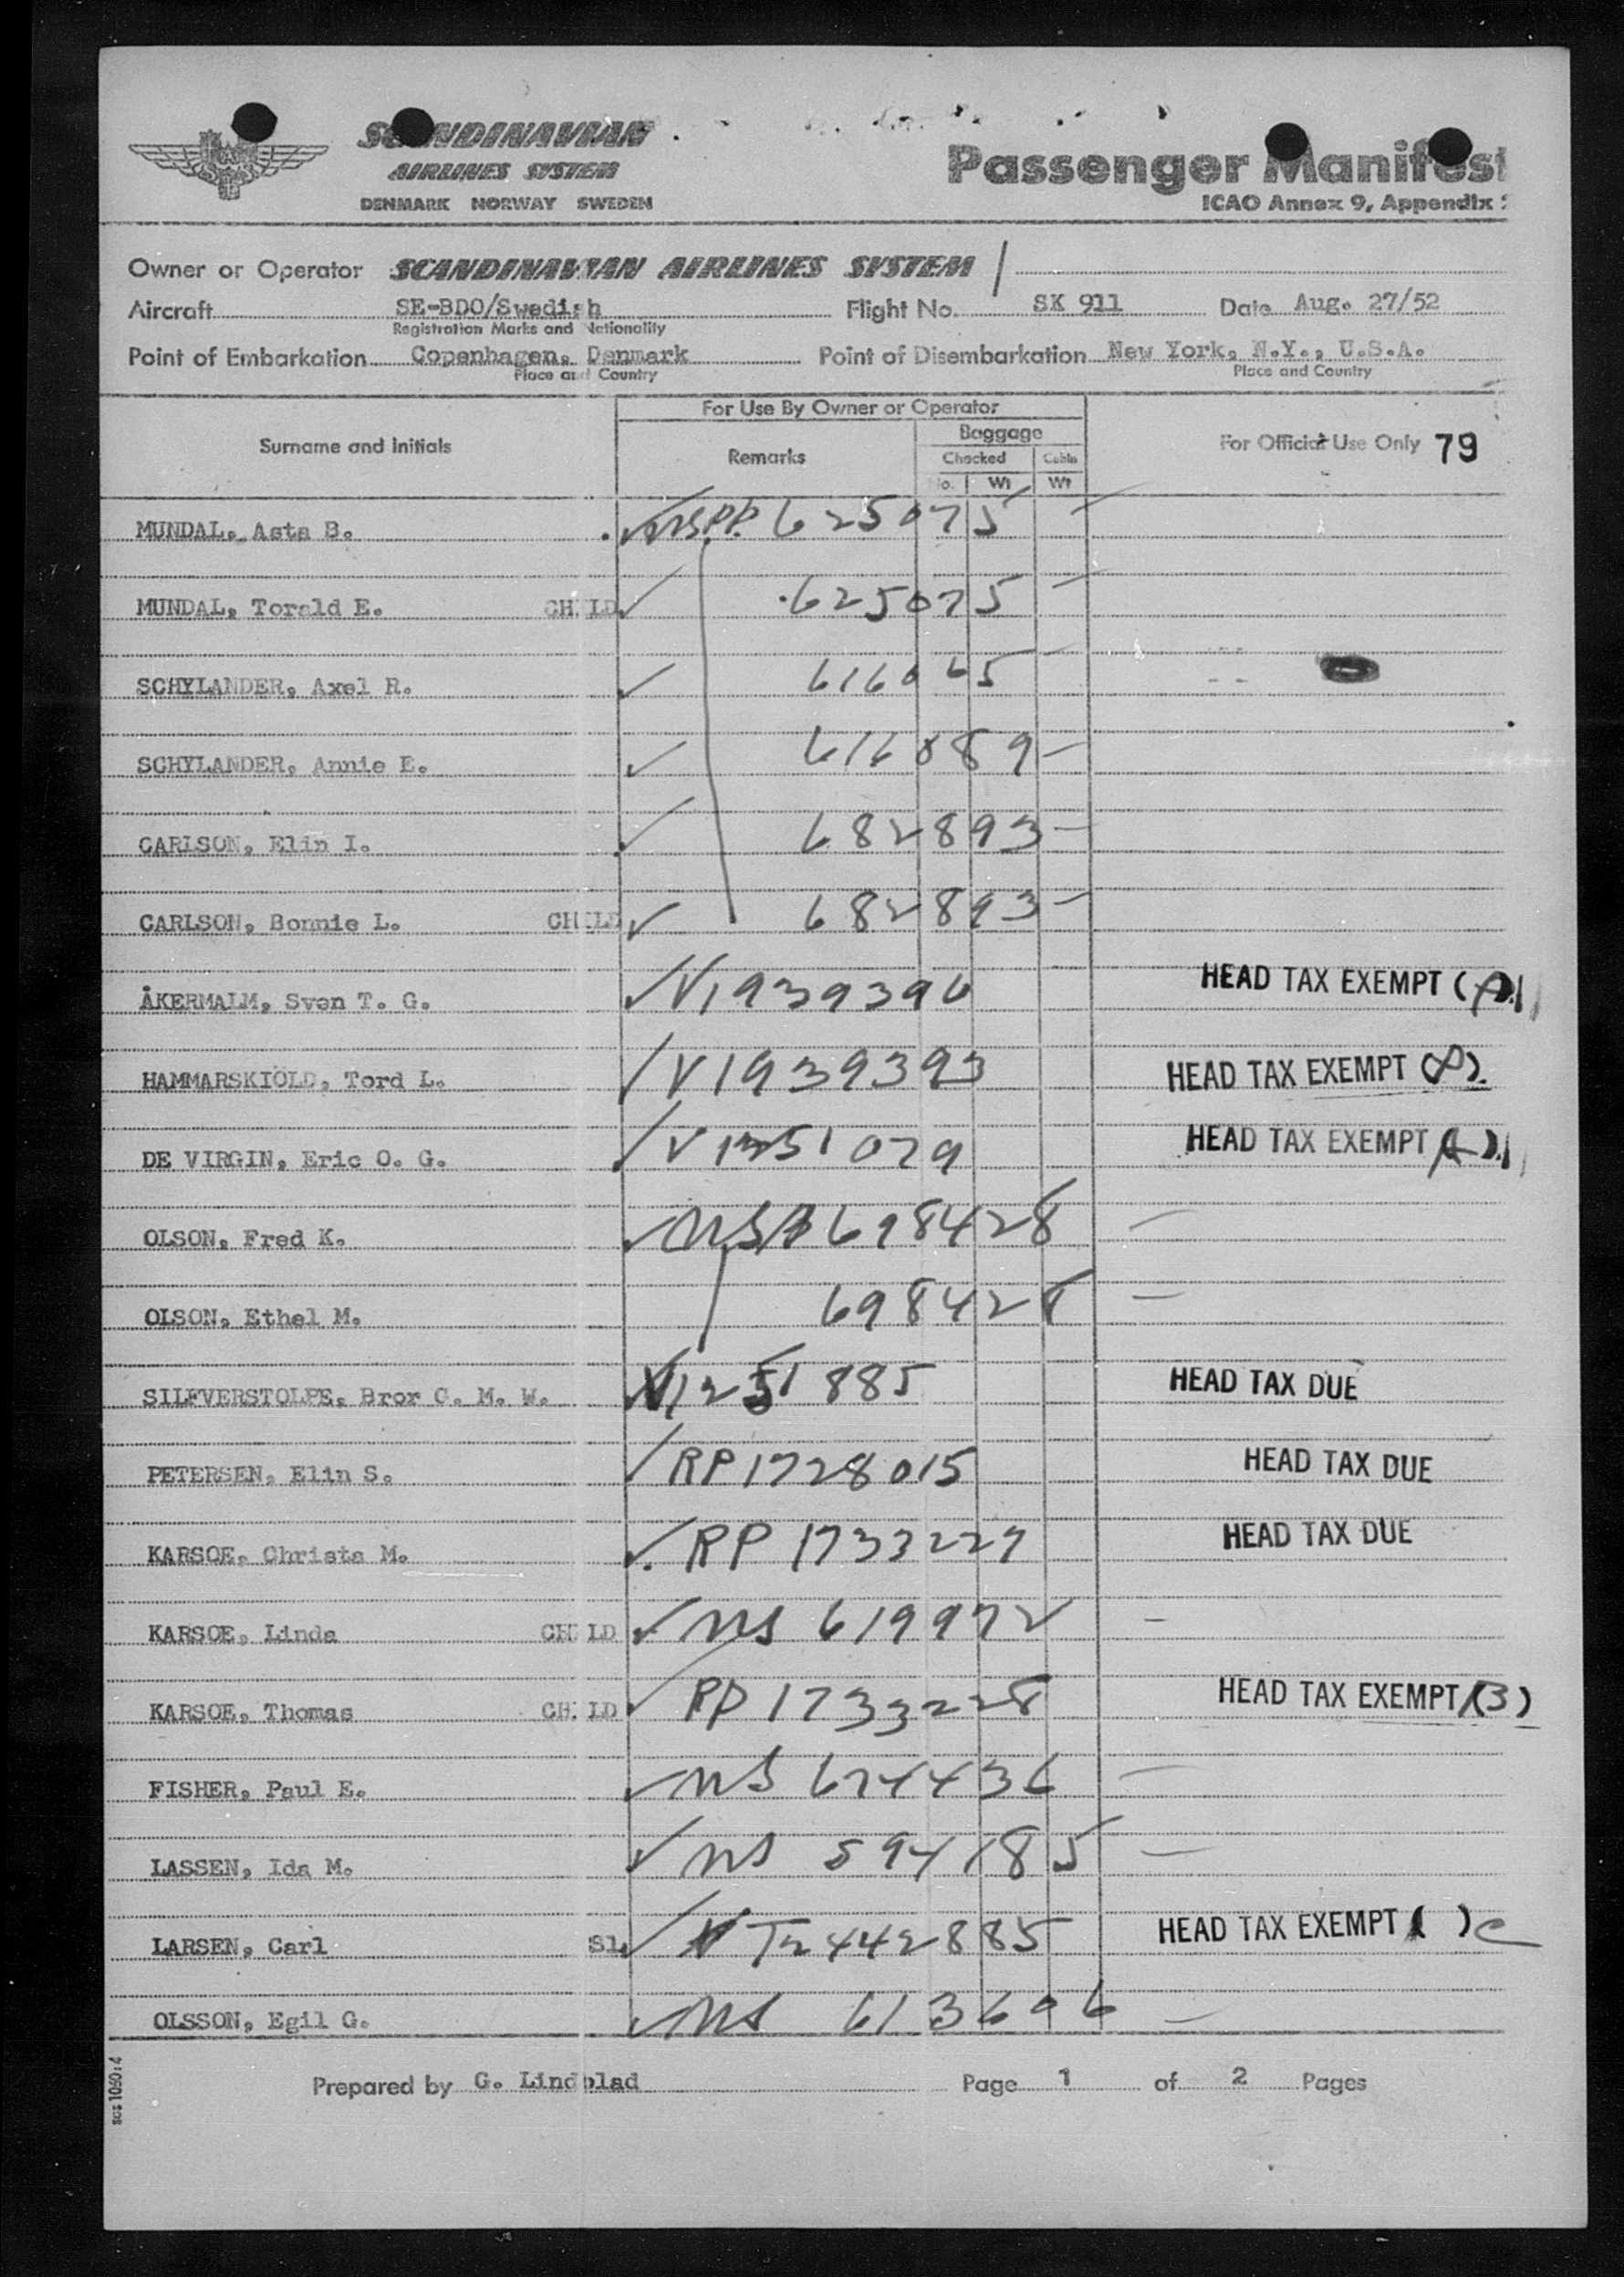 SCANDINAVIAN
AIRLINES SYSTEM
DENMARK NORWAY SWEDEN
Passenger Manifest
ICAO Annex 9, Appendix
Owner or Operator SCANDINAVIAN AIRLINES SYSTEM
Aircraft SE-BDO/Swedish Flight No. SK 911 Date Aug. 27/52
Registration Marks and Nationality
Point of Embarkation Copenhagen, Denmark Point of Disembarkation New York, N.Y., U.S.A.
Place and Country Place and Country
For Use By Owner or Operator
Surname and Initials Remarks Baggage For Official Use Only 79
Checked Cabin
No. Wt Wt
MUNDAL, Asta B. USPP. 625075
MUNDAL, Torald E. CHILD 625075
SCHYLANDER, Axel R.
SCHYLANDER, Annie E. 616889
CARLSON, Elin I. 682893
CARLSON, Bonnie L. CHILD 682893
ÅKERMALM, Sven T. G. V1939396 HEAD TAX EXEMPT (A)
HAMMARSKIOLD, Tord L. V1939393 HEAD TAX EXEMPT
DE VIRGIN, Eric O. G. HEAD TAX EXEMPT (A)
OLSON, Fred K. 698428
OLSON, Ethel M. 698428
SILFVERSTOLPE, Bror G. M. W. V1251885 HEAD TAX DUE
PETERSEN, Elin S. RP1728015 HEAD TAX DUE
KARSOE, Christa M. RP 1733227 HEAD TAX DUE
KARSOE, Linda CHILD US 619972
KARSOE, Thomas CHILD RP 1733228 HEAD TAX EXEMPT (B)
FISHER, Paul E. US 674436
LASSEN, Ida M. US 594185
LARSEN, Carl Sl. T2442885 HEAD TAX EXEMPT ( ) C
OLSSON, Egil G. US 613696
Prepared by G. Lindblad Page 1 of 2 Pages